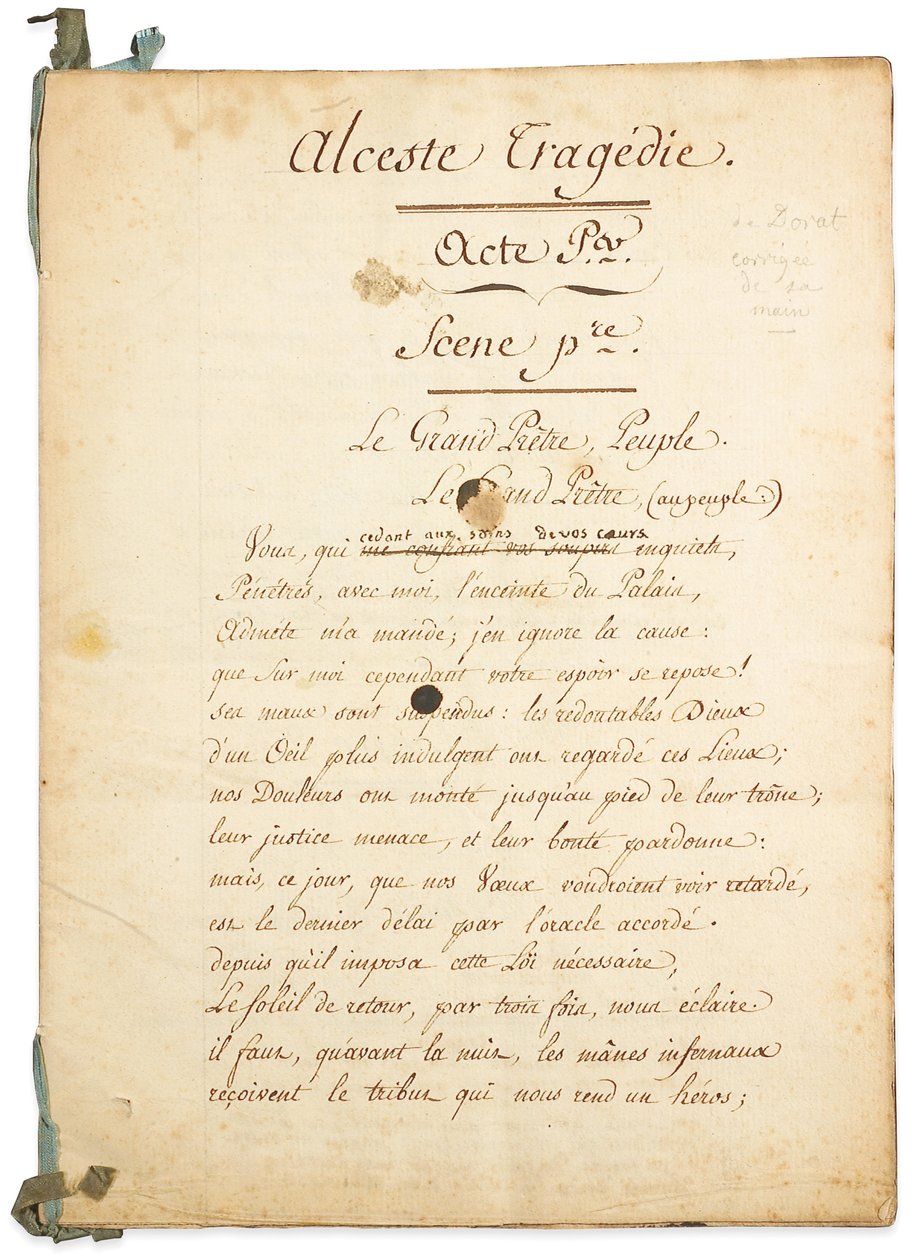 Alceste Tragédie.
de Dorat
corrigée
de sa
main
Acte P.er.
Scene pre.
Le Grand Prêtre, Peuple.
Le Grand Prêtre, (au peuple:)
cedant aux soins de vos cœurs
Vous, qui me confiant vos soupirs inquiets,
Pénétrés, avec moi, l'enceinte du Palais,
Admète m'a mandé; j'en ignore la cause:
que Sur moi cependant votre espoir se repose!
ses maux sont suspendus: les redoutables Dieux
d'un Oeil plus indulgent ont regardé ces Lieux;
nos Douleurs ont monté jusqu'au pied de leur trône;
leur justice menace, et leur bonté pardonne:
mais, ce jour, que nos Vœux voudroient voir retardé,
est le dernier délai par l'oracle accordé.
depuis qu'il imposa cette Loi nécessaire,
Le soleil de retour, par trois fois, nous éclaire.
il faut, qu'avant la nuit, les mânes infernaux
reçoivent le tribut qui nous rend un héros;